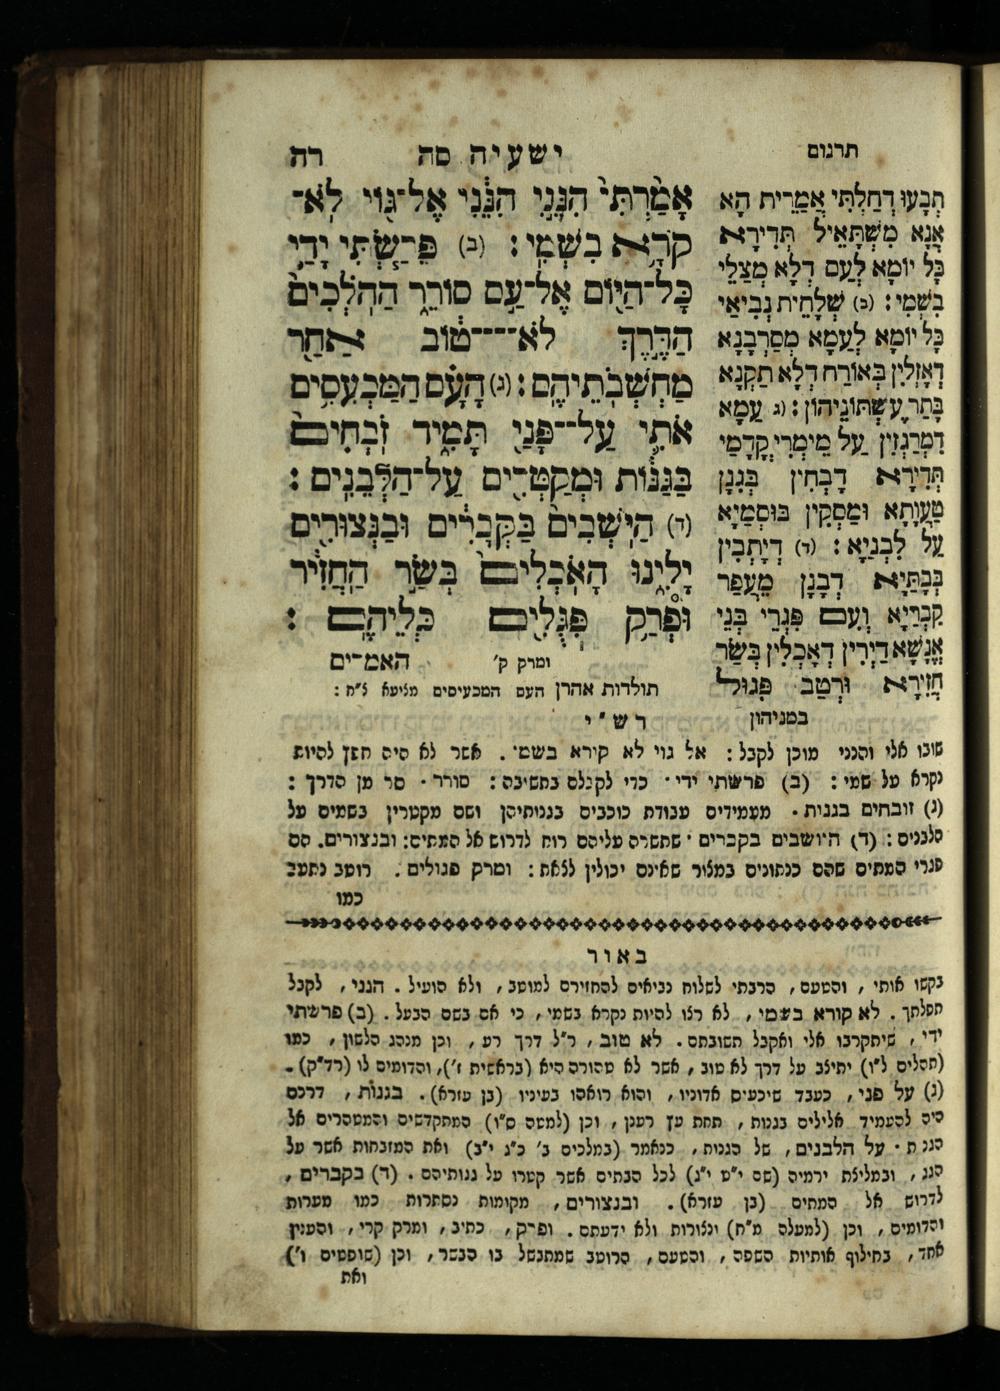 תרגום
ישעיה סה
רה
אָמַ֙רְתִּי֙ הִנֵּ֣נִי הִנֵּ֔נִי אֶל־גּ֖וֹי לֹֽא־
קֹרָ֥א בִשְׁמִֽי : (ב) פֵּרַ֧שְׂתִּי יָדַ֛י
כָּל־הַיּ֖וֹם אֶל־עַ֣ם סוֹרֵ֑ר הַהֹֽלְכִים֙
הַדֶּ֣רֶךְ לֹא־טֹ֔וב אַחַ֖ר
מַחְשְׁבֹֽתֵיהֶֽם : (ג) הָעָ֗ם הַמַּכְעִסִ֥ים
אֹתִ֛י עַל־פָּנַ֖י תָּמִ֑יד זֹֽבְחִים֙
בַּגַּנּ֔וֹת וּמְקַטְּרִ֖ים עַל־הַלְּבֵנִֽים :
(ד) הַיֹּֽשְׁבִים֙ בַּקְּבָרִ֔ים וּבַנְּצוּרִ֖ים
יָלִ֑ינוּ הָאֹֽכְלִים֙ בְּשַׂ֣ר הַֽחֲזִ֔יר
וּפְרַ֥ק פִּגֻּלִ֖ים כְּלֵיהֶֽם :
ומרק ק׳
האמרים
תולדות אהרן העם המכעיסים מליעא ל״ח :
תְבָעוּ דְחַלְתִּי אֲמָרִית הָא
אֲנָא מִשְׁתָּאֵיל תְּדִירָא
כָּל יוֹמָא לְעַם דְלָא מְצַלֵּי
בִשְׁמִי : (ב) שְׁלָחִית נְבִיאַי
כָּל יוֹמָא לְעַמָא מְסָרְבָנָא
דְאָזְלִין בְּאוֹרַח דְלָא תַקְנָא
בָּתַר עֶשְׁתּוֹנֵיהוֹן : (ג עַמָא
דִמְרַגְזִין עַל מֵימְרִי קֳדָמַי
תְּדִירָא דָבְחִין בְּגִנַן
טַעֲוָתָא וּמַסְקִין בּוּסְמַיָא
עַל לִבְנַיָא : (ד) דְיָתְבִין
בְּבָתַּיָא דְבָנָן מֵעֲפַר
קִבְרַיָא וְעִם פִּגְרֵי בְּנֵי
אֱנָשָׁא דַיְרִין דְאָכְלִין בְּשַׂר
חֲזִירָא וּרְטַב פִּגּוּל
במניהון
רש״י
שובו אלי והנני מוכן לקבל : אל גוי לא קורא בשמי . אשר לא היה חפץ להיות
נקרא על שמי : (ב) פרשתי ידי . כדי לקבלם בתשיבה : סורר . סר מן הדרך :
(ג) זובחים בגנות . מעמידים עבודת כוכבים בגנותיהן ושם מקטרין בשמים על
הלבנים : (ד) היושבים בקברים . שתשרה עליהם רוח לדרוש אל המתים : ובנצורים . הם
פגרי המתים שהם כנתונים במצור שאינם יכולין לצאת : ומרק פגולים . רוטב נתעב
כמו
באור
בקשו אותי , והטעם , הרבתי לשלוח נביאים להחזירם למוטב , ולא הועיל . הנני , לקבל
תפלתך . לא קורא בשמי , לא רצו להיות נקרא בשמי , כי אם בשם הבעל . (ב) פרשתי
ידי , שיתקרבו אלי ואקבל תשובתם . לא טוב , ר״ל דרך רע , וכן מנהג הלשון , כמו
(תהלים ל״ו) יתיצב על דרך לא טוב , אשר לא טהורה היא (בראשית ז׳) , והדומים לו (רד״ק) .
(ג) על פני , כעבד שיכעים אדוניו , והוא רואהו בעיניו (בן עזרא) . בגנות , דרכם
היה להעמיד אלילים בגנות , תחת עץ רענן , וכן (למטה ס״ו) המתקדשים והמטהרים אל
הגנות . על הלבנים , של הגגות , כנאמר (במלכים ב׳ כ״ג י״ב) ואת המזבחות אשר על
הגג , ובמליצת ירמיה (שם י״ט י״ג) לכל הבתים אשר קטרו על גגותיהם . (ד) בקברים ,
לדרוש אל המתים (בן עזרא) . ובנצורים , מקומות נסתרות כמו מערות
והדומים , וכן (למעלה מ״ח) ונצורות ולא ידעתם . ופרק , כתיב , ומרק קרי , והענין
אחד , בחילוף אותיות השפה , והטעם , הרוטב שמתבשל בו הבשר , וכן (שופטים ו׳)
ואת